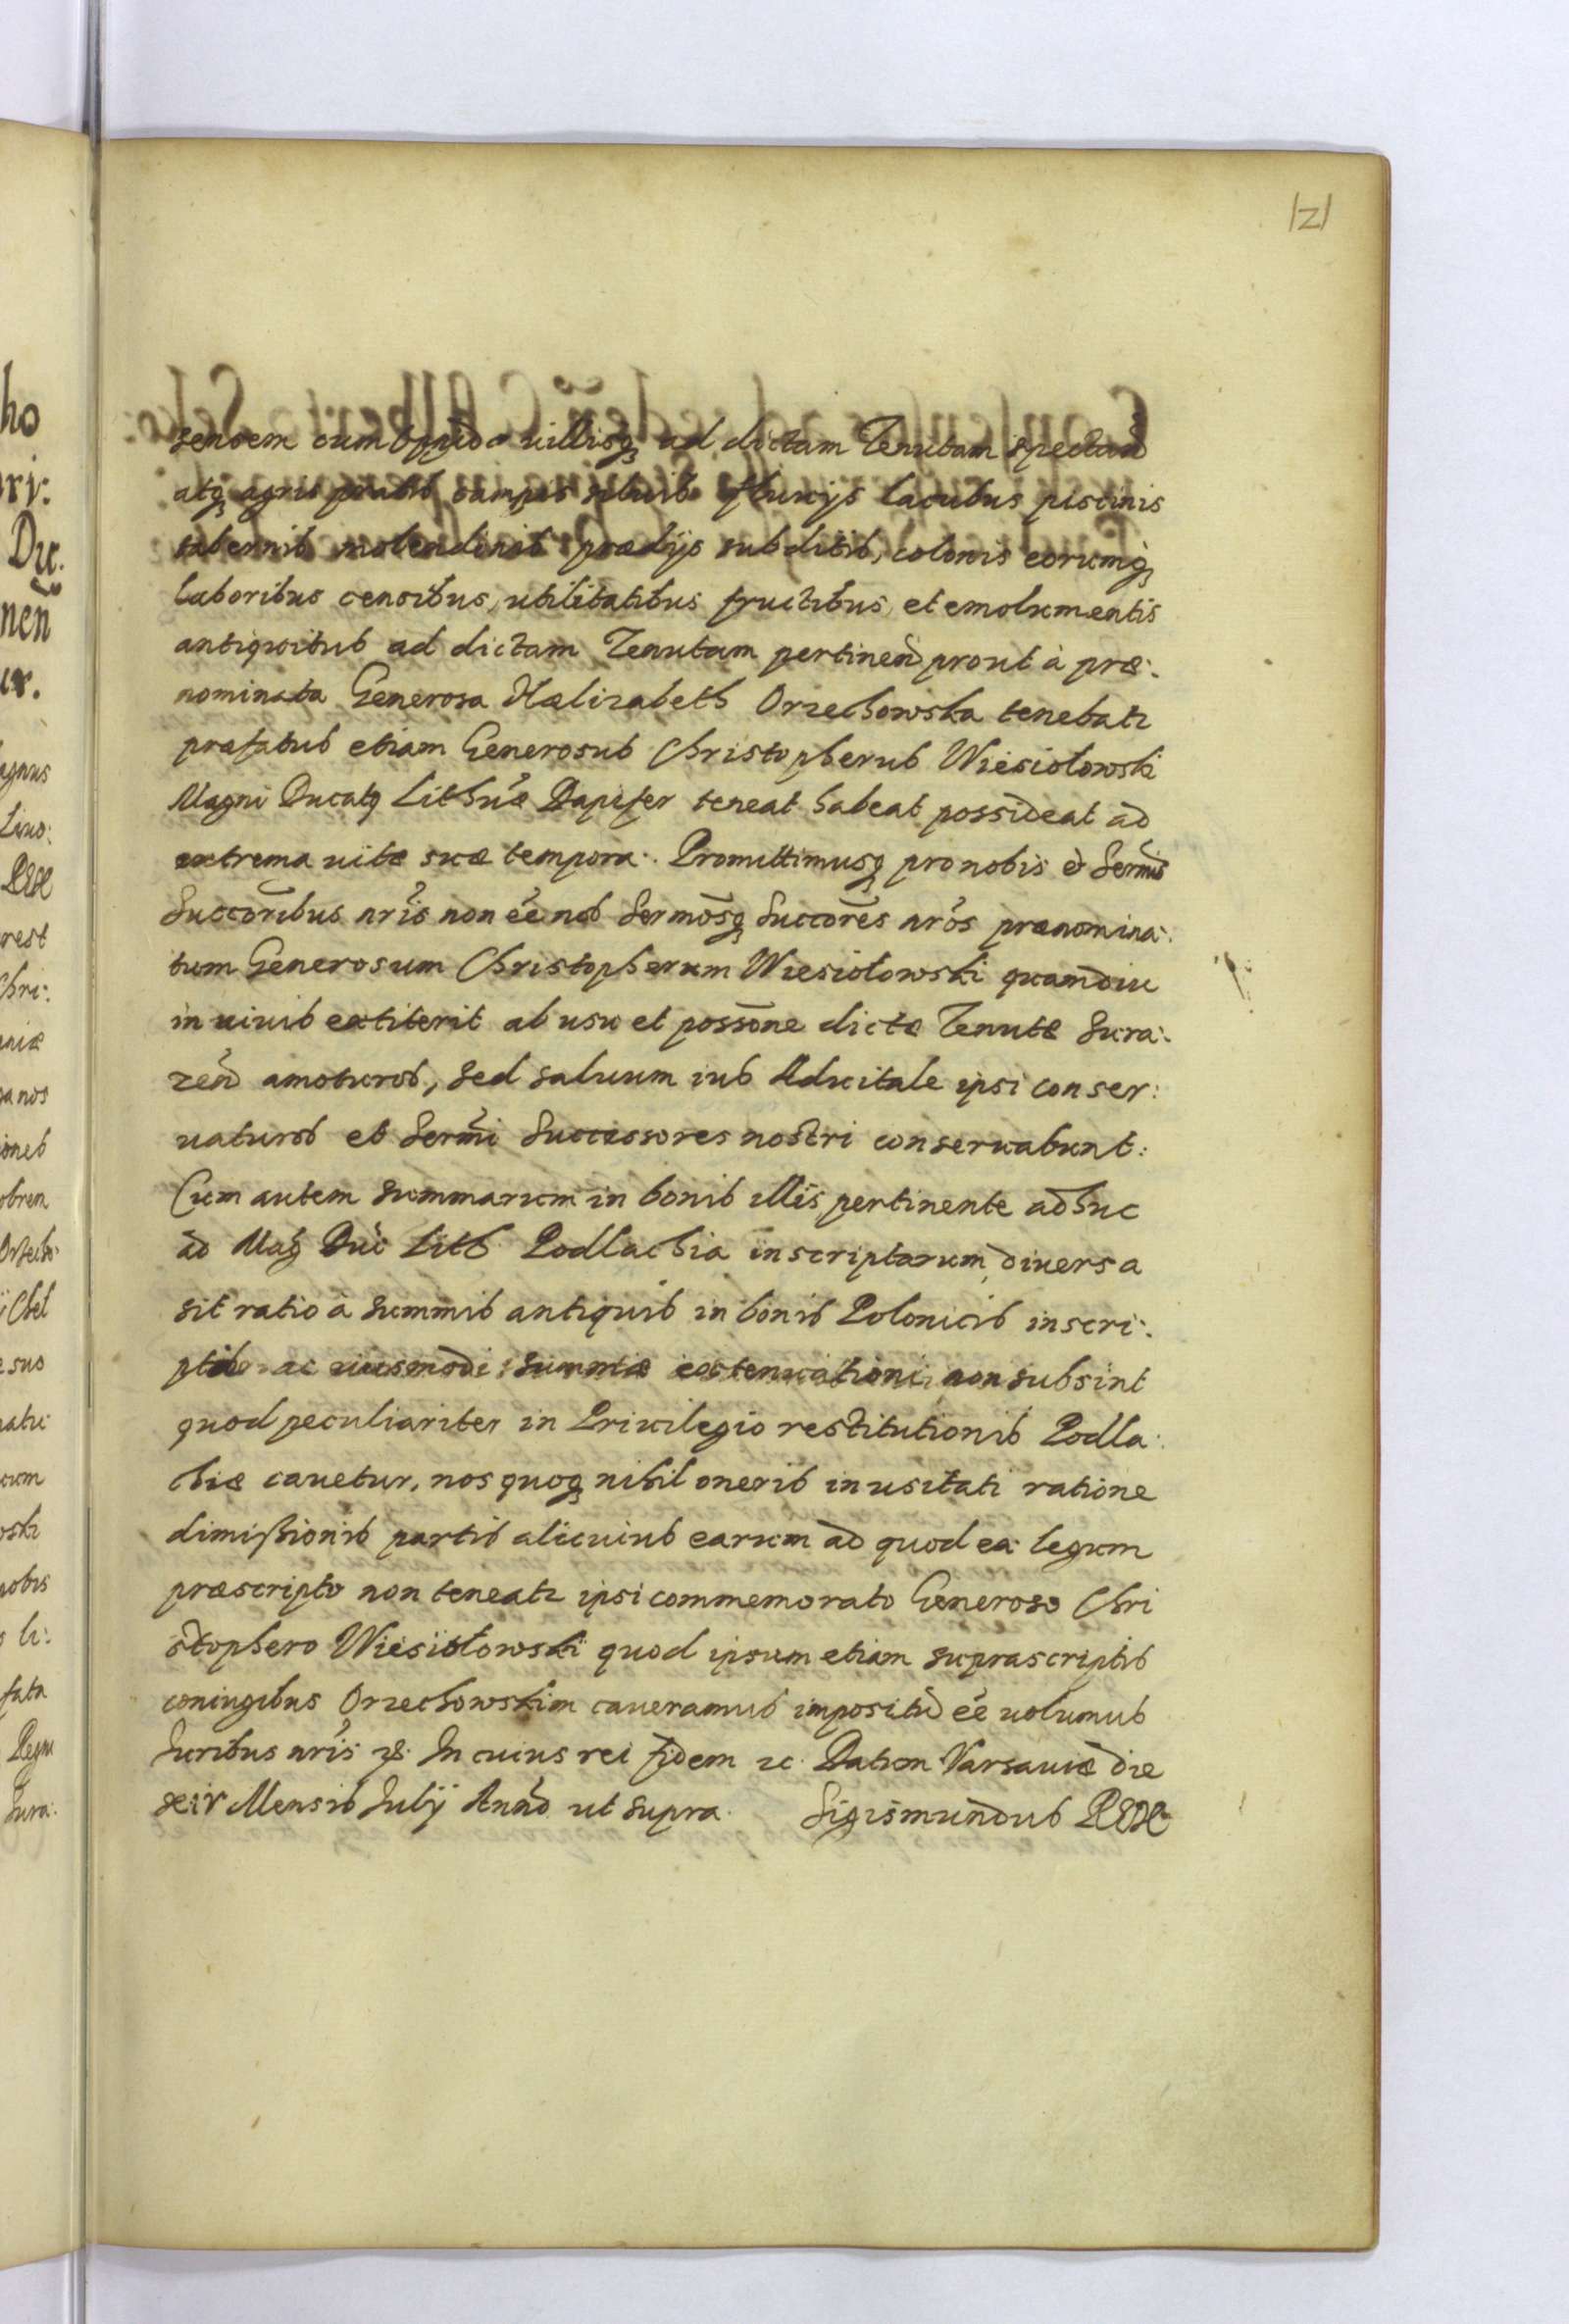 121
sensem cum Oppido villisq ad dictam Tenutam spectan̄
atq agris pratis campis siluis fluuijs lacubus piscinis
tabernis molendinis prædijs subditis, colonis eorumq
laboribus censibus, utilitatibus fructibus et emolumentis
antiquitus ad dictam Tenutam pertineñ prout à præ:
nominata Generosa Hælizabeth Orzechowska tenebatr
præfatus etiam Generosus Christopherus Wiesiołowski
Magni Ducatq Lithúæ Dapifer teneat habeat possideat ad
extrema uitæ suæ tempora. Promittimusq pro nobis et Sermis
Succoribus nrīs non eé nos Sermosq Succorēs nrōs prænomina:
tum Generosum Christopherum Wiesiołowski quamdiu
in uiuis extiterit ab usu et possōne dictæ Tenutæ Sura:
zeñ amoturos, sed saluum ius Aduitale ipsi conser:
uaturos et Sermi Successores nostri conseruabunt:
Cum autem summarum in bonis illis pertinente adhuc
ad Mag Duć Lith Podlachia inscriptarum, diuersa
sit ratio à summis antiquis in bonis Polonicis inscri:
ptis ac eiusmodi summæ extenuationi non subsint
quod peculiariter in Priuilegio restitutionis Podla:
chiæ cauetur, nos quoq nihil oneris inusitati ratione
dimissionis partis alicuius earum ad quod ea legum
præscripto non teneatr ipsi commemorato Generoso Chri
stophero Wiesiołowski quod ipsum etiam suprascriptis
coniugibus Orzechowskim caueramus impositū eé uolumus
Iuribus nrīs &. In cuius rei fidem &c. Datum Varsauiæ die
xiv Mensis Iulij Anno ut supra. Sigismundus Rex